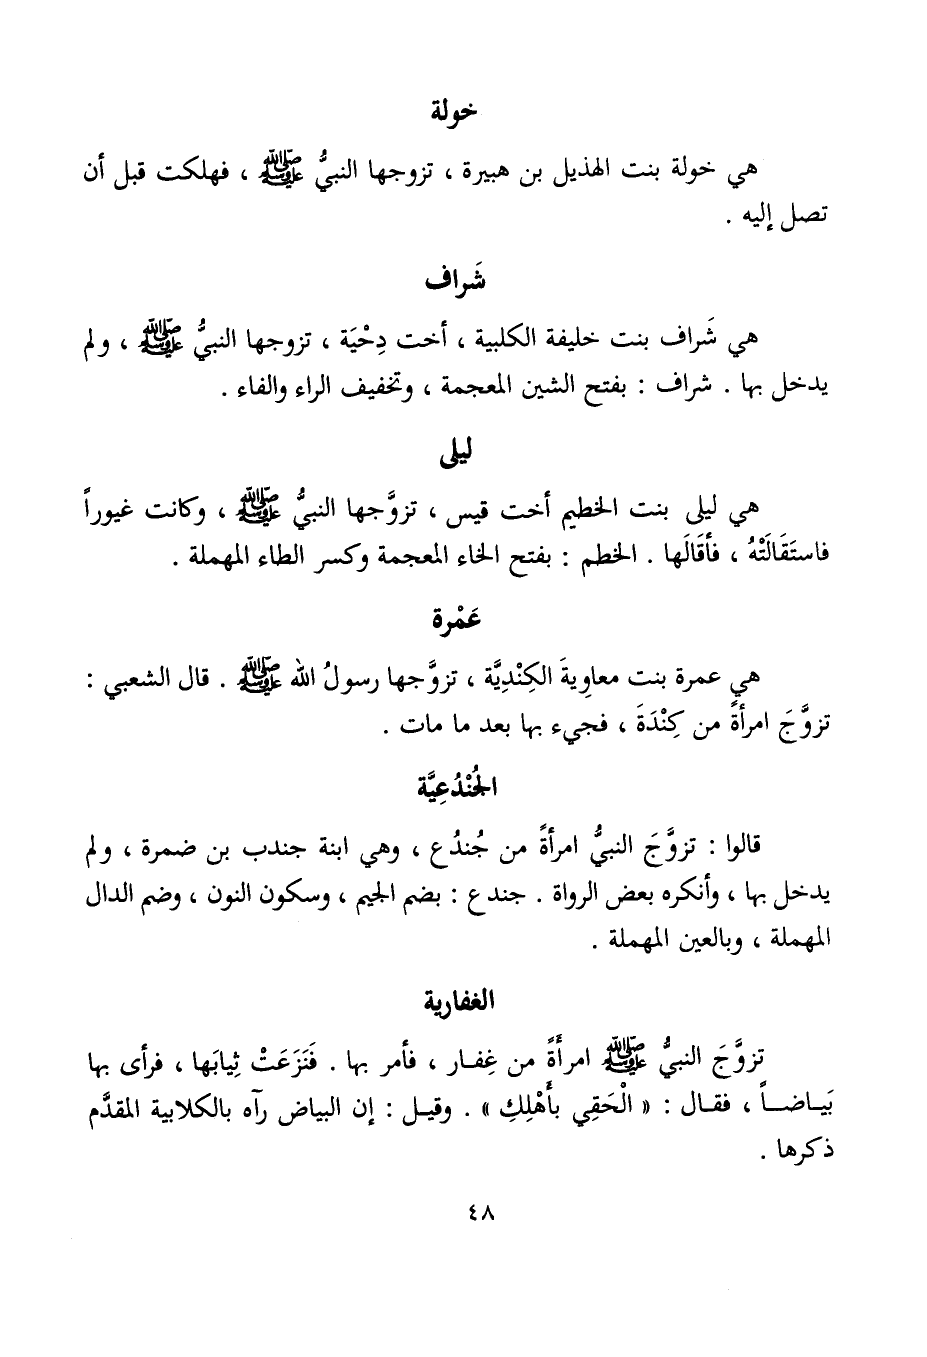 خولة
هي خولة بنت الهذيل بن هبيرة ، تزوجها النبيُّ ﷺ ، فهلكت قبل أن
تصل إليه .
شَراف
هي شَراف بنت خليفة الكلبية ، أخت دِحْيَة ، تزوجها النبيُّ ﷺ ، ولم
يدخل بها . شراف : بفتح الشين المعجمة ، وتخفيف الراء والفاء .
ليلى
هي ليلى بنت الخطيم أخت قيس ، تزوَّجها النبيُّ ﷺ ، وكانت غيوراً
فاستَقَالَتْهُ ، فأقَالَها . الخطم : بفتح الخاء المعجمة وكسر الطاء المهملة .
عَمْرة
هي عمرة بنت معاوِيةَ الكِنْدِيَّة ، تزوَّجها رسولُ الله ﷺ . قال الشعبي :
تزوَّجَ امرأةً من كِنْدَةَ ، فجيء بها بعد ما مات .
الجُنْدُعِيَّة
قالوا : تزوَّجَ النبيُّ امرأةً من جُندُع ، وهي ابنة جندب بن ضمرة ، ولم
يدخل بها ، وأنكره بعض الرواة . جندع : بضم الجيم ، وسكون النون ، وضم الدال
المهملة ، وبالعين المهملة .
الغفارية
تزوَّجَ النبيُّ ﷺ امرأَةً من غِفـار ، فأمر بها . فَنَزَعَتْ ثِيابَها ، فرأى بها
بَيـاضــاً ، فقـال : « الْحَقِي بأَهْلِكِ » . وقيـل : إن البياض رآه بالكلابية المقدَّم
ذكرها .
٤٨